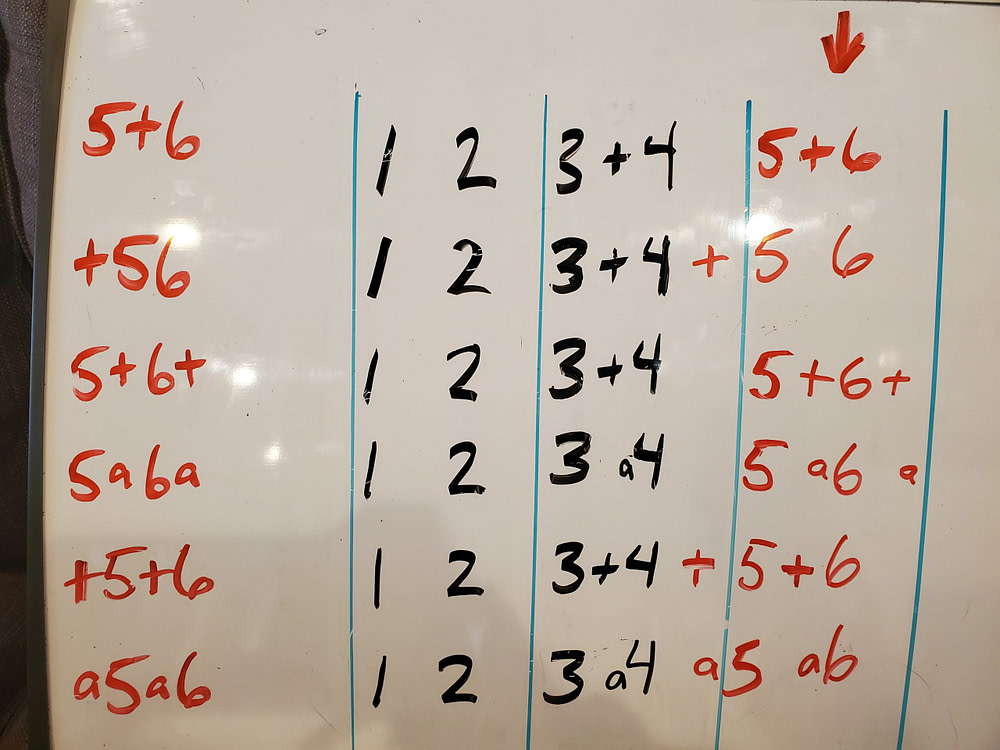 5+6 1 2 3+4 5+6
+56 1 2 3+4 + 5 6
5+6+ 1 2 3+4 5+6+
5a6a 1 2 3 a4 5 a6 a
+5+6 1 2 3+4 + 5+6
a5a6 1 2 3 a4 a5 a6